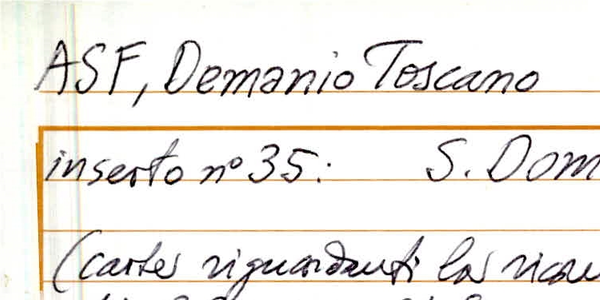 ASF, Demanio Toscano
inserto n° 35: S. Dom
(carte riguardanti la